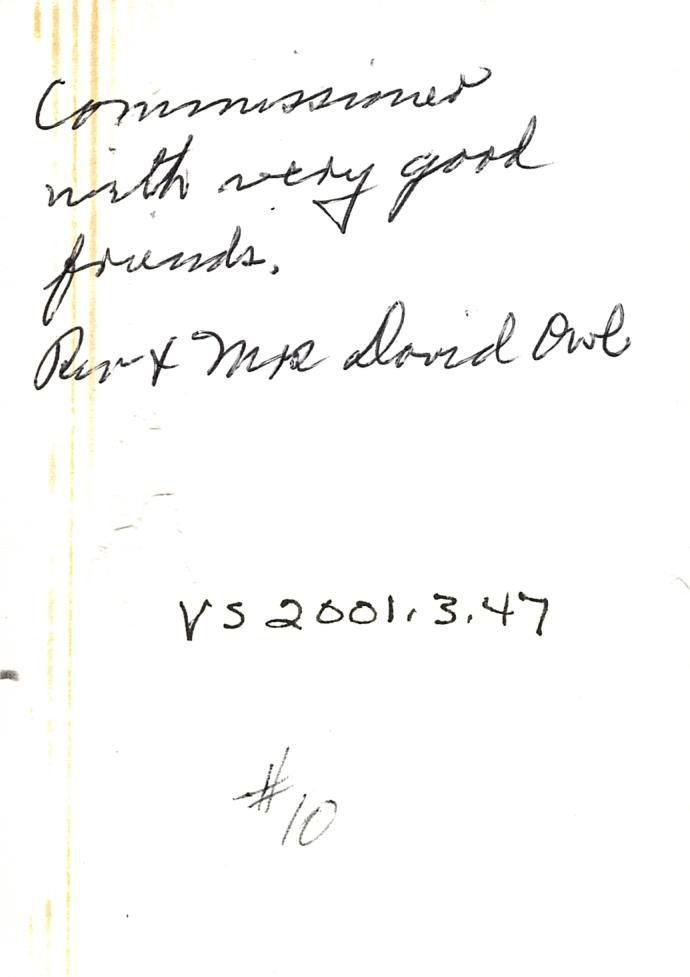 Commissioner
with very good
friends.
Rev & Mrs David Owl
VS 2001.3.47
#10